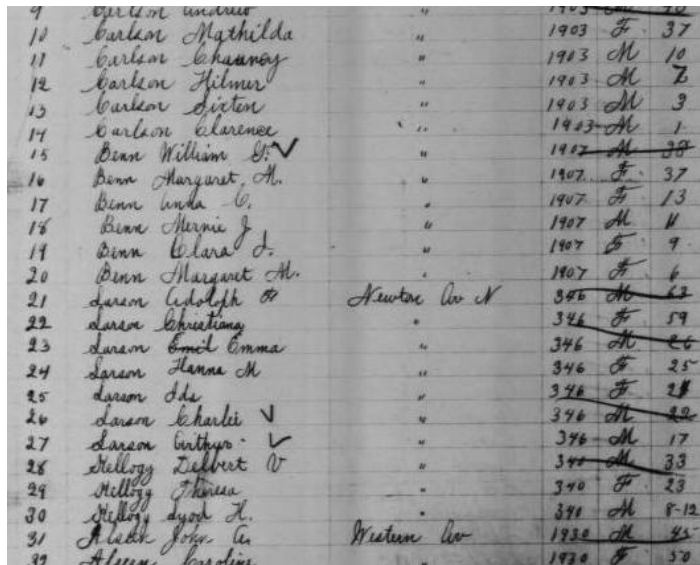 9 Carlson Andrew " 1903
10 Carlson Mathilda " 1903 F 37
11 Carlson Chauncy " 1903 M 10
12 Carlson Hilmer " 1903 M 7
13 Carlson Sixten " 1903 M 3
14 Carlson Clarence " 1903 M 1
15 Benn William G. " 1907 M 38
16 Benn Margaret M. " 1907 F 37
17 Benn Anna C. " 1907 F 13
18 Benn Mernie J " 1907 M 11
19 Benn Clara J. " 1907 F 9
20 Benn Margaret M. " 1907 F 6
21 Larson Adoloph Newton Av N 346 M 63
22 Larson Christiana " 346 F 59
23 Larson Emil Emma " 346 M 26
24 Larson Hanna M " 346 F 25
25 Larson Ida " 346 F
26 Larson Charlie " 346 M 22
27 Larson Arthur " 346 M 17
28 Kellogg Delbert V " 340 M 33
29 Kellogg Theresa " 340 F 23
30 Kellogg Lyod H. " 340 M 8-12
31 John A. Western Av 1930 M 45
32 Caroline 1930 F 50